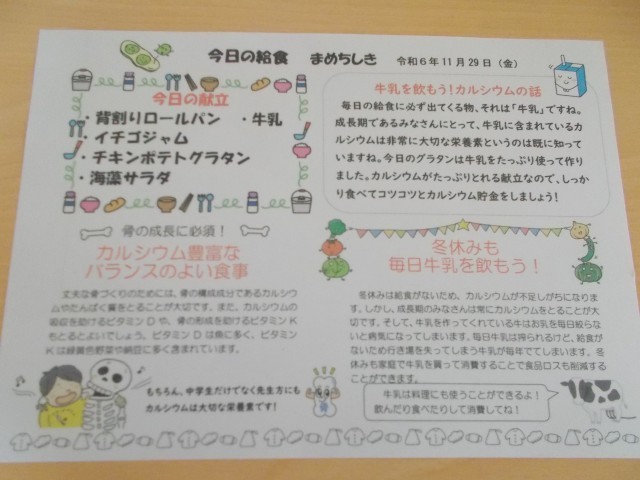 今日の給食 まめちしき 令和6年11月29日（金）
今日の献立
・背割りロールパン ・牛乳
・イチゴジャム
・チキンポテトグラタン
・海藻サラダ
牛乳を飲もう！カルシウムの話
毎日の給食に必ず出てくる物、それは「牛乳」ですね。
成長期であるみなさんにとって、牛乳に含まれているカ
ルシウムは非常に大切な栄養素というのは既に知ってい
ますね。今日のグラタンは牛乳をたっぷり使って作り
ました。カルシウムがたっぷりとれる献立なので、しっか
り食べてコツコツとカルシウム貯金をしましょう！
骨の成長に必須！
カルシウム豊富な
バランスのよい食事
丈夫な骨づくりのためには、骨の構成成分であるカルシウ
ムやたんぱく質をとることが大切です。また、カルシウムの
吸収を助けるビタミンDや、骨の形成を助けるビタミンK
もとるとよいでしょう。ビタミンDは魚に多く、ビタミン
Kは緑黄色野菜や納豆に多く含まれています。
もちろん、中学生だけでなく先生方にも
カルシウムは大切な栄養素です！
冬休みも
毎日牛乳を飲もう！
冬休みは給食がないため、カルシウムが不足しがちになりま
す。しかし、成長期のみなさんは常にカルシウムをとることが大
切です。そして、牛乳を作ってくれている牛はお乳を毎日絞らな
いと病気になってしまいます。毎日牛乳は搾られるけど、給食が
ないため行き場を失ってしまう牛乳が毎年でてしまいます。冬
休みも家庭で牛乳を買って消費することで食品ロスも削減する
ことができます。
牛乳は料理にも使うことができるよ！
飲んだり食べたりして消費してね！